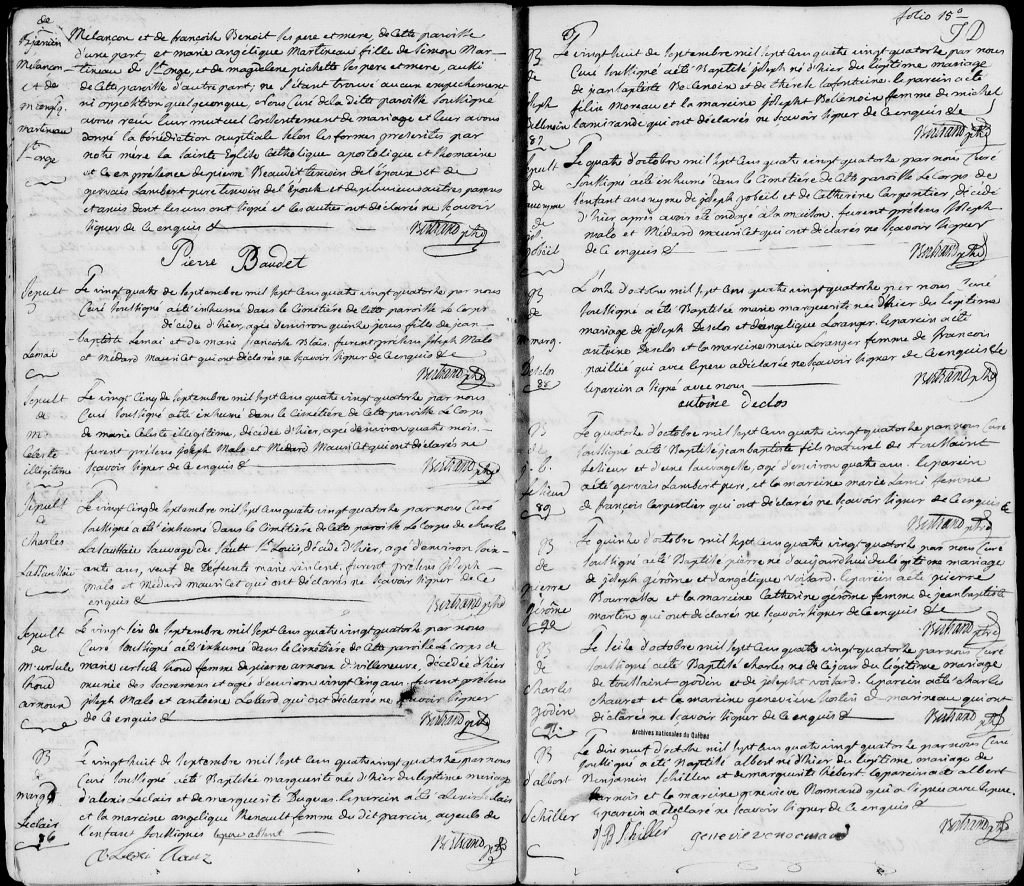 de
Benjamin
Melançon
et de
m. angelq.
martineau
St. onge
Melançon et de françoise Benoit ses pere et mere, de cette paroisse
d'une part, et marie angélique Martineau fille de Simon Mar-
tineau de St. onge, et de magdelene pichette ses pere et mere, aussi
de cette paroisse d'autre part, ne s'étant trouvé aucun empechement
ni opposition quelqueonque, Nous Curé de la ditte paroisse soussigné
avons reçu leur mutuel Consentement de mariage et leur avons
donné la bénédiction nuptiale selon les formes prescrites par
notre mère la Sainte Eglise Catholique apostolique et Romaine
et ce en présence de pierre Beaudet temoin de l'époux et de
gervais Lambert pere temoin de l'Epouse et de plusieurs autres parens
et amis dont les uns ont signé et les autres ont déclarés ne sçavoir
signer de ce enquis &
Bertrand ptre
Pierre Baudet
Sepult
Lemai
Le vingt quatre de septembre mil sept cens quatre vingt quatorze par nous
Curé soussigné a été inhumé dans le Cimétière de cette paroisse Le Corps
décédé d'hier, agée d'environ quinze jours fille de jean-
baptiste Lemai et de marie françoise Blais. furent présens Joseph Malo
et Médard Mauricet qui ont déclarés ne sçavoir signer de ce enquis &
Bertrand ptre
Sepult
de
m.
Celeste
illégitime
Le vingt Cinq de septembre mil sept cens quatre vingt quatorze par nous
Curé soussigné a été inhumé dans le Cimétière de cette paroisse Le Corps
de marie Celeste illégitime, décédée d'hier, agée d'environ quatre mois,
furent présens Joseph Malo et Médard Mauricet qui ont déclarés ne
sçavoir signer de ce enquis &
Bertrand ptre
Sépult
de
Charles
Lassaussaie
Le vingt Cinq de septembre mil sept cens quatre vingt quatorze par nous Curé
soussigné a été inhumé dans le Cimétière de cette paroisse Le Corps de charles
sauvage du Sault St. Louis, décédé d'hier, agé d'environ soix-
ante ans, veuf de deffunte marie vincent. furent présens joseph
malo et Médard mauricet qui ont déclarés ne sçavoir signer de ce
enquis &
Bertrand ptre
Sepult
de
m. ursule
houd
arnoux
Le vingt six de septembre mil sept cens quatre vingt quatorze par nous
Curé soussigné a été inhumé dans le Cimétière de cette paroisse le corps de
marie ursule houd femme de pierre arnoux d. villeneuve, décédée d'hier
munie des sacremens et agée d'environ vingt cinq ans. furent présens
joseph Malo et antoine qui ont déclarés ne sçavoir signer
de ce enquis &
Bertrand ptre
B
de
marg.
Leclair
86
Le vingt huit de septembre mil sept cens quatre vingt quatorze par nous
Curé soussigné, a été Baptisée marguerite née d'hier du légitime mariage
d'alexis Leclair et de marguerite Duguas. le parein a été alexis Leclair
et la mareine angelique Renault femme du dit parein, ayeuls de
l'enfant soussignés le pere absent
Bertrand ptre
folio 15°
JD
B
de
joseph
Bellenoix
87
Le vingt huit de septembre mil sept cens quatre vingt quatorze par nous
Curé soussigné a été Baptisé joseph né d'hier du légitime mariage
de jean baptiste Belenoix et de therese Lafontaine. le parein a été
félix Moreau et la mareine josepht Bellenoix femme de michel
lamirande qui ont déclarés ne sçavoir signer de ce enquis &
Bertrand ptre
Sepult
de
anonyme
de
jos.
jobeil
Le quatre d'octobre mil sept cens quatre vingt quatorze par nous Curé
soussigné a été inhumé dans le Cimétière de cette paroisse Le Corps de
l'enfant anonyme de joseph jobeil et de Catherine Carpentier, décédé
d'hier après avoir été ondoyé à la maison. furent présens Joseph
malo et Médard mauricet qui ont déclarés ne sçavoir signer
de ce enquis &
Bertrand ptre
B
de
m. marg.
Desclos
88
L'onze d'octobre mil sept cens quatre vingt quatorze par nous Curé
soussigné a été Baptisée marie marguerite née d'hier du légitime
mariage de joseph Desclos et d'angelique Loranger. le parein a été
antoine Desclos et la mareine marie Loranger femme de francois
paillié qui avec le pere a déclarés ne sçavoir signer de ce enquis &
le parein a signé avec nous
Bertrand ptre
antoine declos
B
de
j. b.
89
Le quatorze d'octobre mil sept cens quatre vingt quatorze par nous Curé
soussigné a été Baptisé jean baptiste fils naturel de toussaint
et d'une sauvagesse, agé d'environ quatre ans. le parein
a été gervais Lambert pere, et la mareine marie femme
de françois Carpentier qui ont déclarés ne sçavoir signer de ce enquis &
Bertrand ptre
B
de
pierre
gérôme
90
Le quinze d'octobre mil sept cens quatre vingt quatorze par nous Curé
soussigné a été Baptisé pierre né d'aujourd'hui du légitime mariage
de joseph gérôme et d'angelique voisard. le parein a été pierre
Bourrassa et la mareine Catherine gérôme femme de jean baptiste
martin qui ont déclarés ne sçavoir signer de ce enquis &
Bertrand ptre
B
de
Charles
godin
91
Le seize d'octobre mil sept cens quatre vingt quatorze par nous Curé
soussigné a été Baptisé charles né de ce jour du légitime mariage
de toussaint godin et de josepht voisard. le parein a été charles
chauret et la mareine geneviève marineau qui ont
déclarés ne sçavoir signer de ce enquis &
Bertrand ptre
Archives nationales du Québec
B
d'albert
Schiller
Le dix neuf d'octobre mil sept cens quatre vingt quatorze par nous Curé
soussigné a été Baptisé albert né d'hier du légitime mariage de
Benjamin Schiller et de marguerite hébert. le parein a été albert
et la mareine geneviève Normand qui a signé avec le pere,
le parein a déclaré ne sçavoir signer de ce enquis &
Bertrand ptre
B Schiller
genevieve normand